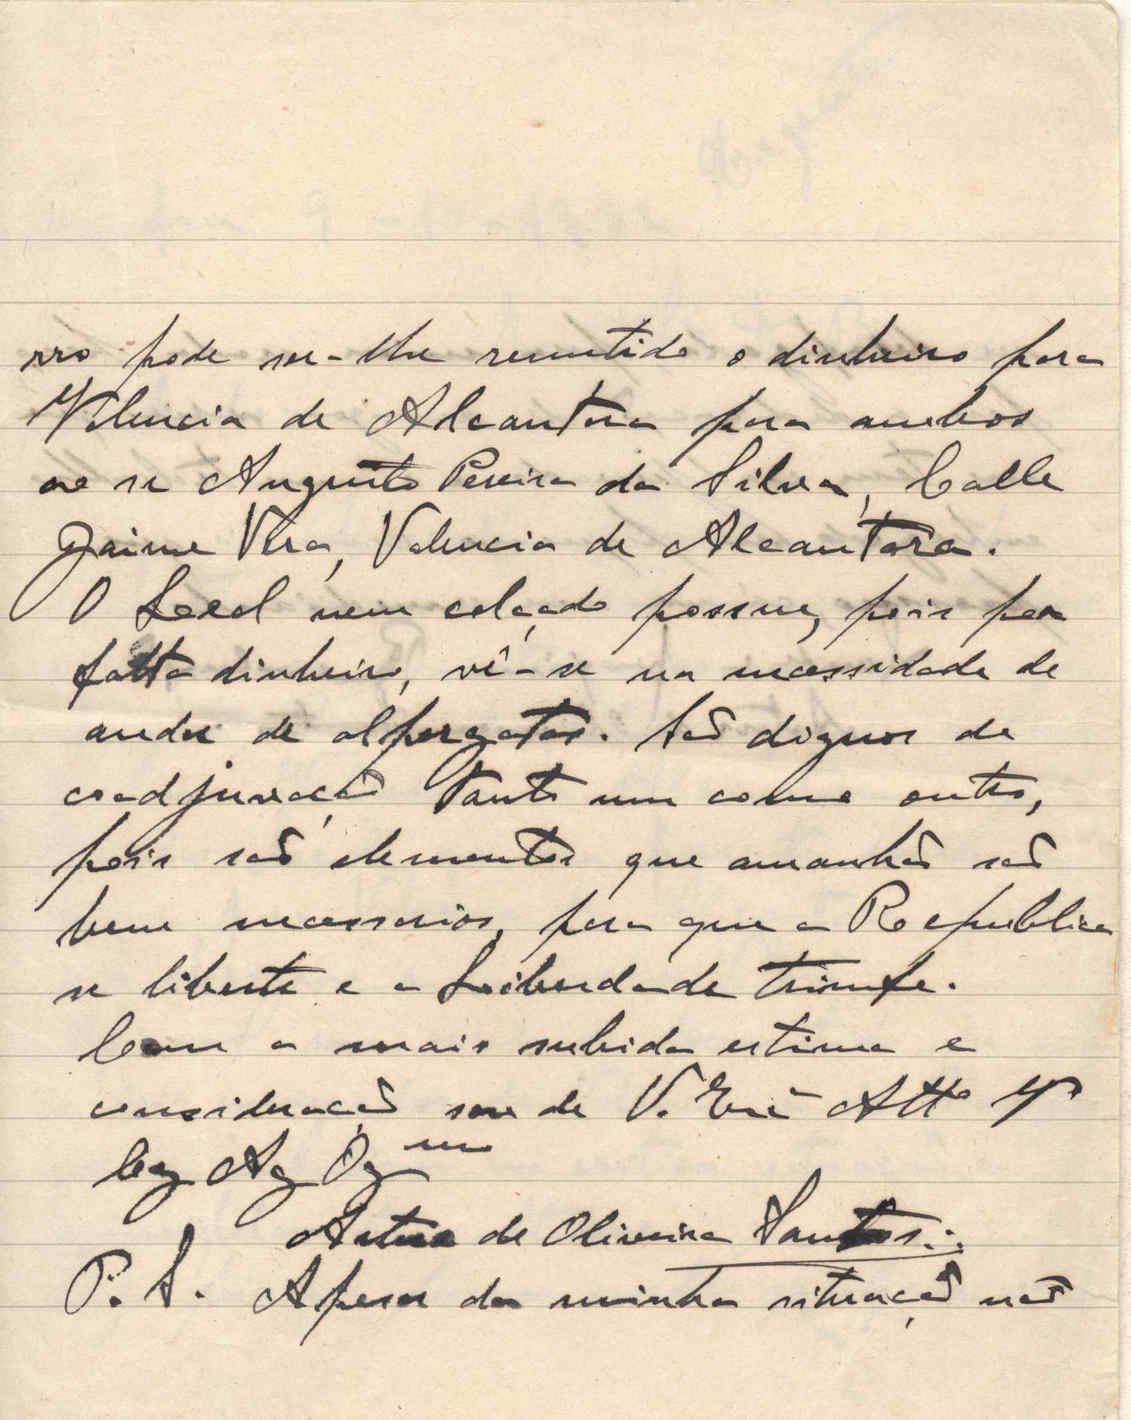 rro pode ser-lhe remetido o dinheiro para
Valencia de Alcantara para ambos
ao sr Augusto Pereira da Silva, Calle
Jaime Vera, Valencia de Alcantara.
O Leal nem calçado possue, pois por
falta dinheiro, vê-se na necessidade de
andar de alpergatas. São dignos de
coadjuvação tanto um como outro,
pois são elementos que amanhã são
bem necessarios, para que a Republica
se liberte e a Liberdade triunfe.
Com a mais subida estima e
consideração sou de V. Exciª Attº Vº
Cº Aº Oº
Artur de Oliveira Santos ∴
P. S. Apesar da minha situação não